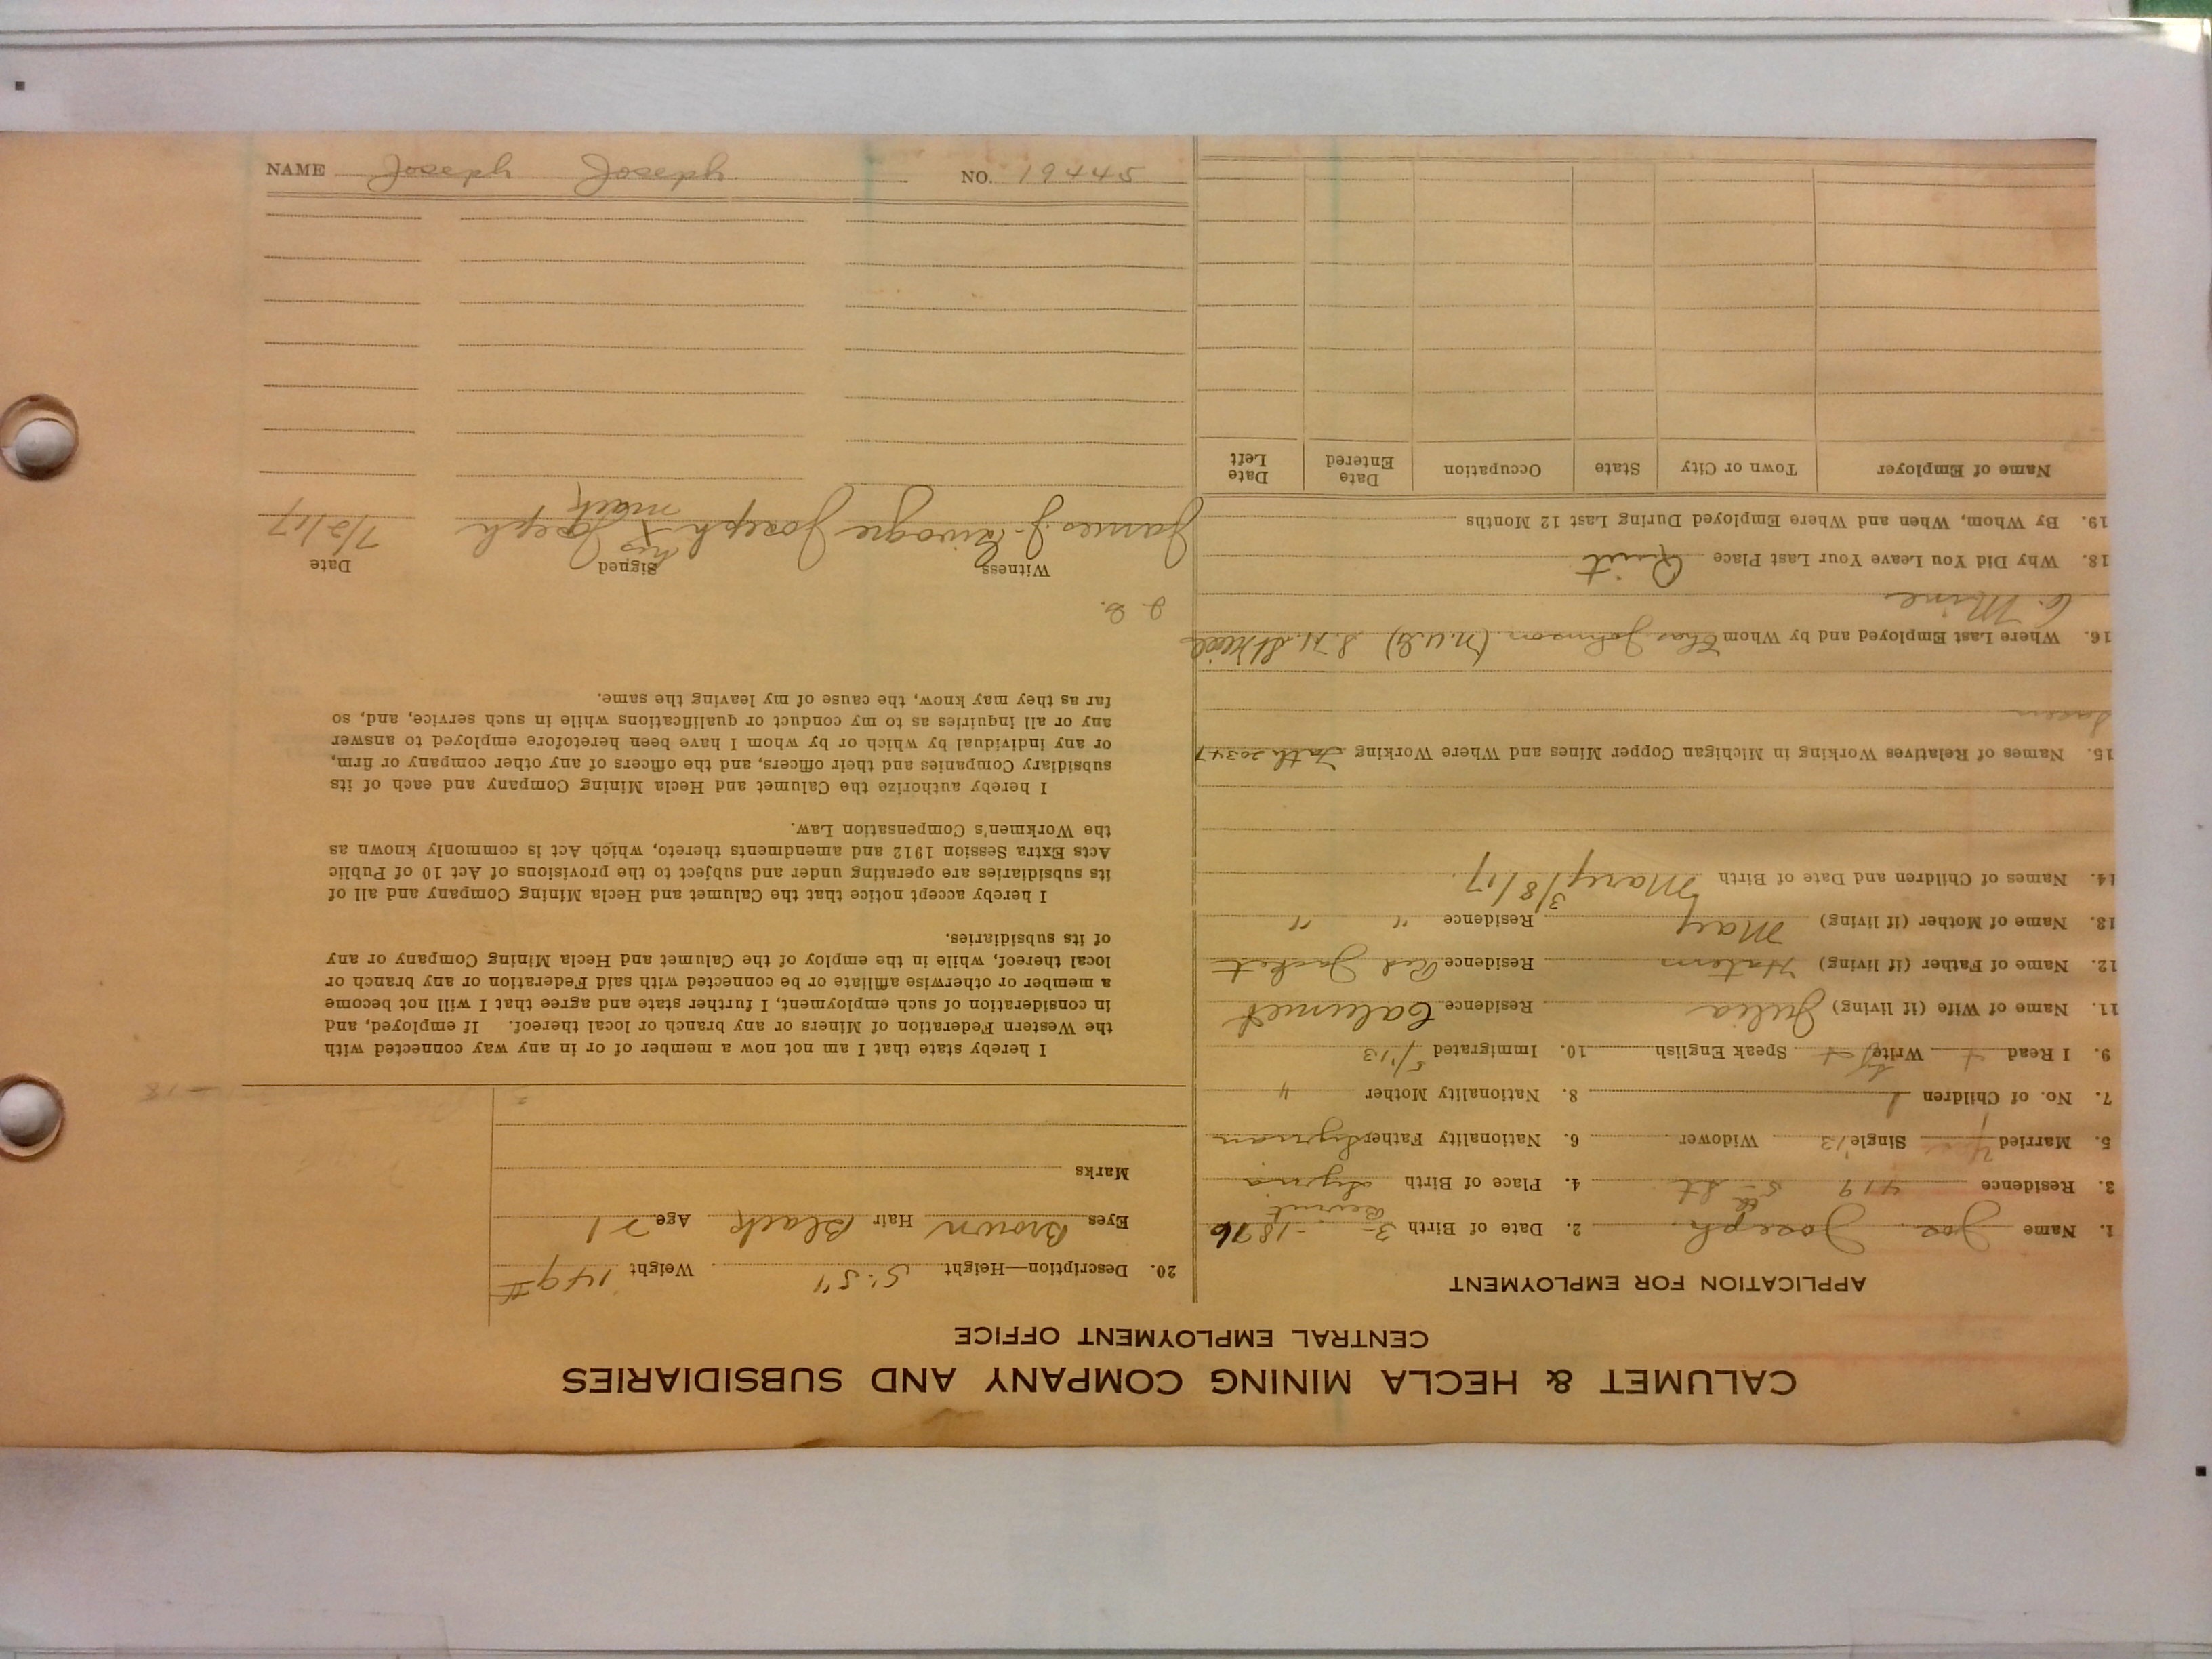 CALUMET & HECLA MINING COMPANY AND SUBSIDIARIES
CENTRAL EMPLOYMENT OFFICE
APPLICATION FOR EMPLOYMENT
1. Name Joe Joseph. 2. Date of Birth 3- -1896
Beirut
3. Residence 419 5th St 4. Place of Birth Syria
5. Married Single Widower 6. Nationality Father Syrian
7. No. of Children 1 8. Nationality Mother "
9. I Read Write Speak English 10. Immigrated 5/13
11. Name of Wife (if living) Julia Residence Calumet
12. Name of Father (if living) Residence Red Jacket
13. Name of Mother (if living) Mary Residence " "
14. Names of Children and Date of Birth Mary 3/8/17.
15. Names of Relatives Working in Michigan Copper Mines and Where Working Fath 20347
16. Where Last Employed and by Whom Chas. Johnson
C. Mine
18. Why Did You Leave Your Last Place Quit
19. By Whom, When and Where Employed During Last 12 Months
Name of Employer Town or City State Occupation Date Entered Date Left
20. Description—Height 5'.5" Weight 149#
Eyes Brown Hair Black Age 21
Marks
I hereby state that I am not now a member of or in any way connected with
the Western Federation of Miners or any branch or local thereof. If employed, and
in consideration of such employment, I further state and agree that I will not become
a member or otherwise affiliate or be connected with said Federation or any branch or
local thereof, while in the employ of the Calumet and Hecla Mining Company or any
of its subsidiaries.
I hereby accept notice that the Calumet and Hecla Mining Company and all of
its subsidiaries are operating under and subject to the provisions of Act 10 of Public
Acts Extra Session 1912 and amendments thereto, which Act is commonly known as
the Workmen's Compensation Law.
I hereby authorize the Calumet and Hecla Mining Company and each of its
subsidiary Companies and their officers, and the officers of any other company or firm,
or any individual by which or by whom I have been heretofore employed to answer
any or all inquiries as to my conduct or qualifications while in such service, and, so
far as they may know, the cause of my leaving the same.
Witness Signed Date
his
James J. Joseph X Joseph 7/2/17
mark
NAME Joseph Joseph. NO. 19445